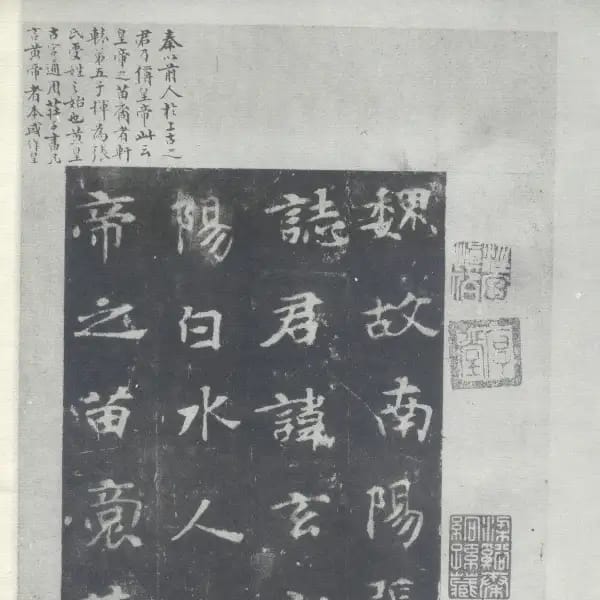 秦以前人於上古之
君乃偁皇帝此云
皇帝之苗裔者軒
轅第五子揮為張
氏受姓之始也黃皇
古字通用莊子書凡
言黃帝者本或作皇
魏故南陽張
誌君諱玄
陽白水人
帝之苗裔